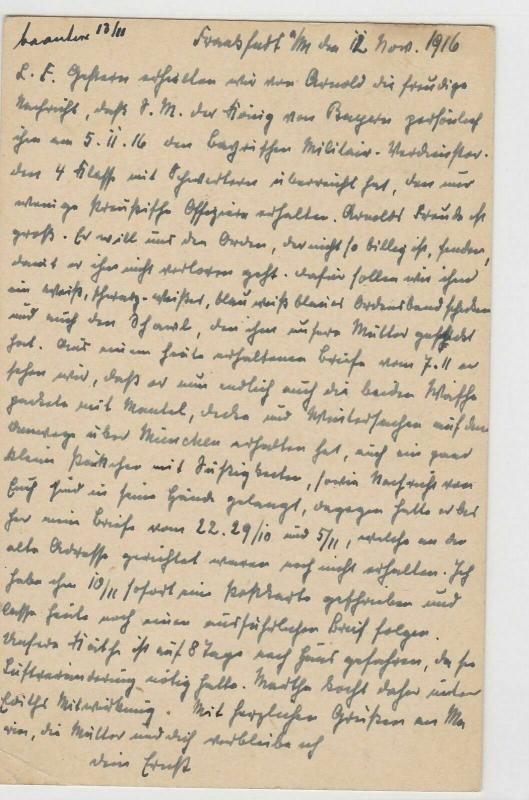 beantw 13/11
Frankfurt a/M den 12 Nov. 1916
L. F. Gestern erhielten wir von Arnold die freudige
Nachricht, daß S. M. der König von Bayern persönlich
ihm am 5.11.16 den Bayrischen Militair-Verdienstor-
den 4 Klasse mit Schwertern überreicht hat, den nur
wenige Preußische Offiziere erhalten. Arnolds Freude ist
groß. Er will uns den Orden, der nicht so billig ist, senden,
damit er ihm nicht verloren geht. Dafür sollen wir ihm
ein weiß, schwarz-weißes, blau weiß blaues Ordensband schicken
und auch den Shawl, den ihm unsere Mutter gestrickt
hat. Aus einem heute erhaltenen Briefe vom 7.11 er
sehen wir, daß er nun endlich auch die beiden Wäsche
packete mit Mantel, Decke und Wintersachen auf dem
Umwege über München erhalten hat, auch ein paar
kleine Päckchen mit Süßigkeiten, sowie Nachricht von
Euch sind in seine Hände gelangt, dagegen hatte er bis
her meine Briefe vom 22. 29/10 und 5/11, welche an die
alte Adresse gerichtet waren noch nicht erhalten. Ich
habe ihm 10/11 sofort eine Postkarte geschrieben und
lasse heute noch einen ausführlichen Brief folgen.
Unsere Käthe ist auf 8 Tage nach Haus gefahren, da sie
Luftveränderung nötig hatte. Martha kocht daher unter
Ediths Mitwirkung. Mit herzlichen Grüßen an Ma
rie, die Mutter und dich verbleibe ich
dein Ernst